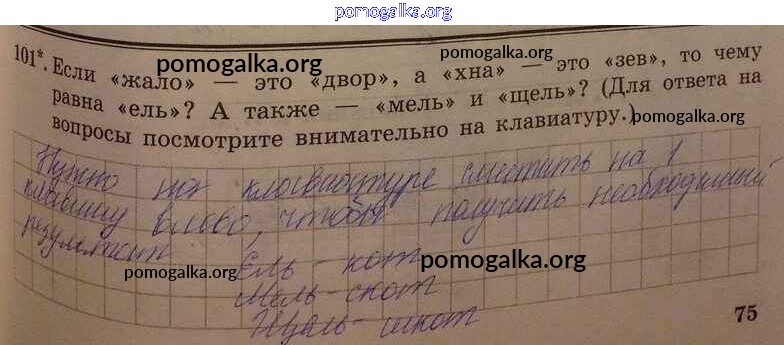 pomogalka.org
101*. Если «жало» — это «двор», а «хна» — это «зев», то чему
равна «ель»? А также — «мель» и «щель»? (Для ответа на
вопросы посмотрите внимательно на клавиатуру.)
pomogalka.org
pomogalka.org
pomogalka.org
Нужно на клавиатуре сместить на 1
клавишу влево, чтобы получить необходимый
результат
Ель - кот
Мель - скот
Щель - шкот
pomogalka.org
pomogalka.org
75